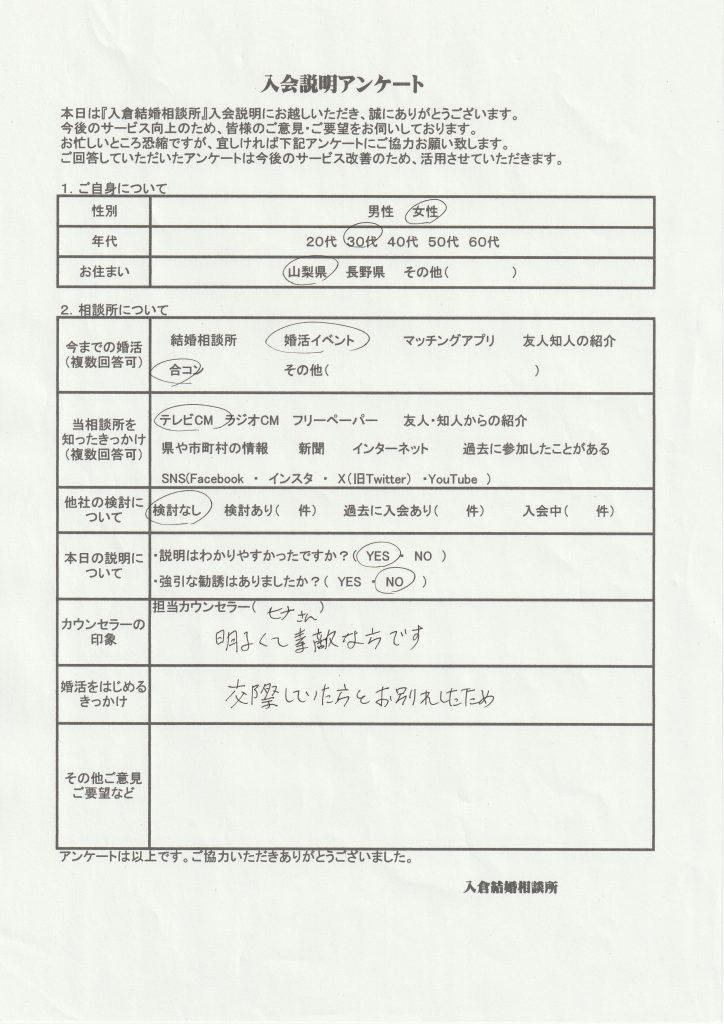 入会説明アンケート
本日は『入倉結婚相談所』入会説明にお越しいただき、誠にありがとうございます。
今後のサービス向上のため、皆様のご意見・ご要望をお伺いしております。
お忙しいところ恐縮ですが、宜しければ下記アンケートにご協力お願い致します。
ご回答していただいたアンケートは今後のサービス改善のため、活用させていただきます。
1. ご自身について
性別 男性 女性
年代 20代 30代 40代 50代 60代
お住まい 山梨県 長野県 その他( )
2. 相談所について
今までの婚活
(複数回答可)
結婚相談所 婚活イベント マッチングアプリ 友人知人の紹介
合コン その他( )
当相談所を
知ったきっかけ
(複数回答可)
テレビCM ラジオCM フリーペーパー 友人・知人からの紹介
県や市町村の情報 新聞 インターネット 過去に参加したことがある
SNS(Facebook ・ インスタ ・ X(旧Twitter) ・YouTube )
他社の検討に
ついて
検討なし 検討あり( 件) 過去に入会あり( 件) 入会中( 件)
本日の説明に
ついて
・説明はわかりやすかったですか？( YES ・ NO )
・強引な勧誘はありましたか？( YES ・ NO )
カウンセラーの
印象
担当カウンセラー( 七ナさん )
明るくて素敵な方です
婚活をはじめる
きっかけ
交際していた方とお別れしたため
その他ご意見
ご要望など
アンケートは以上です。ご協力いただきありがとうございました。
入倉結婚相談所